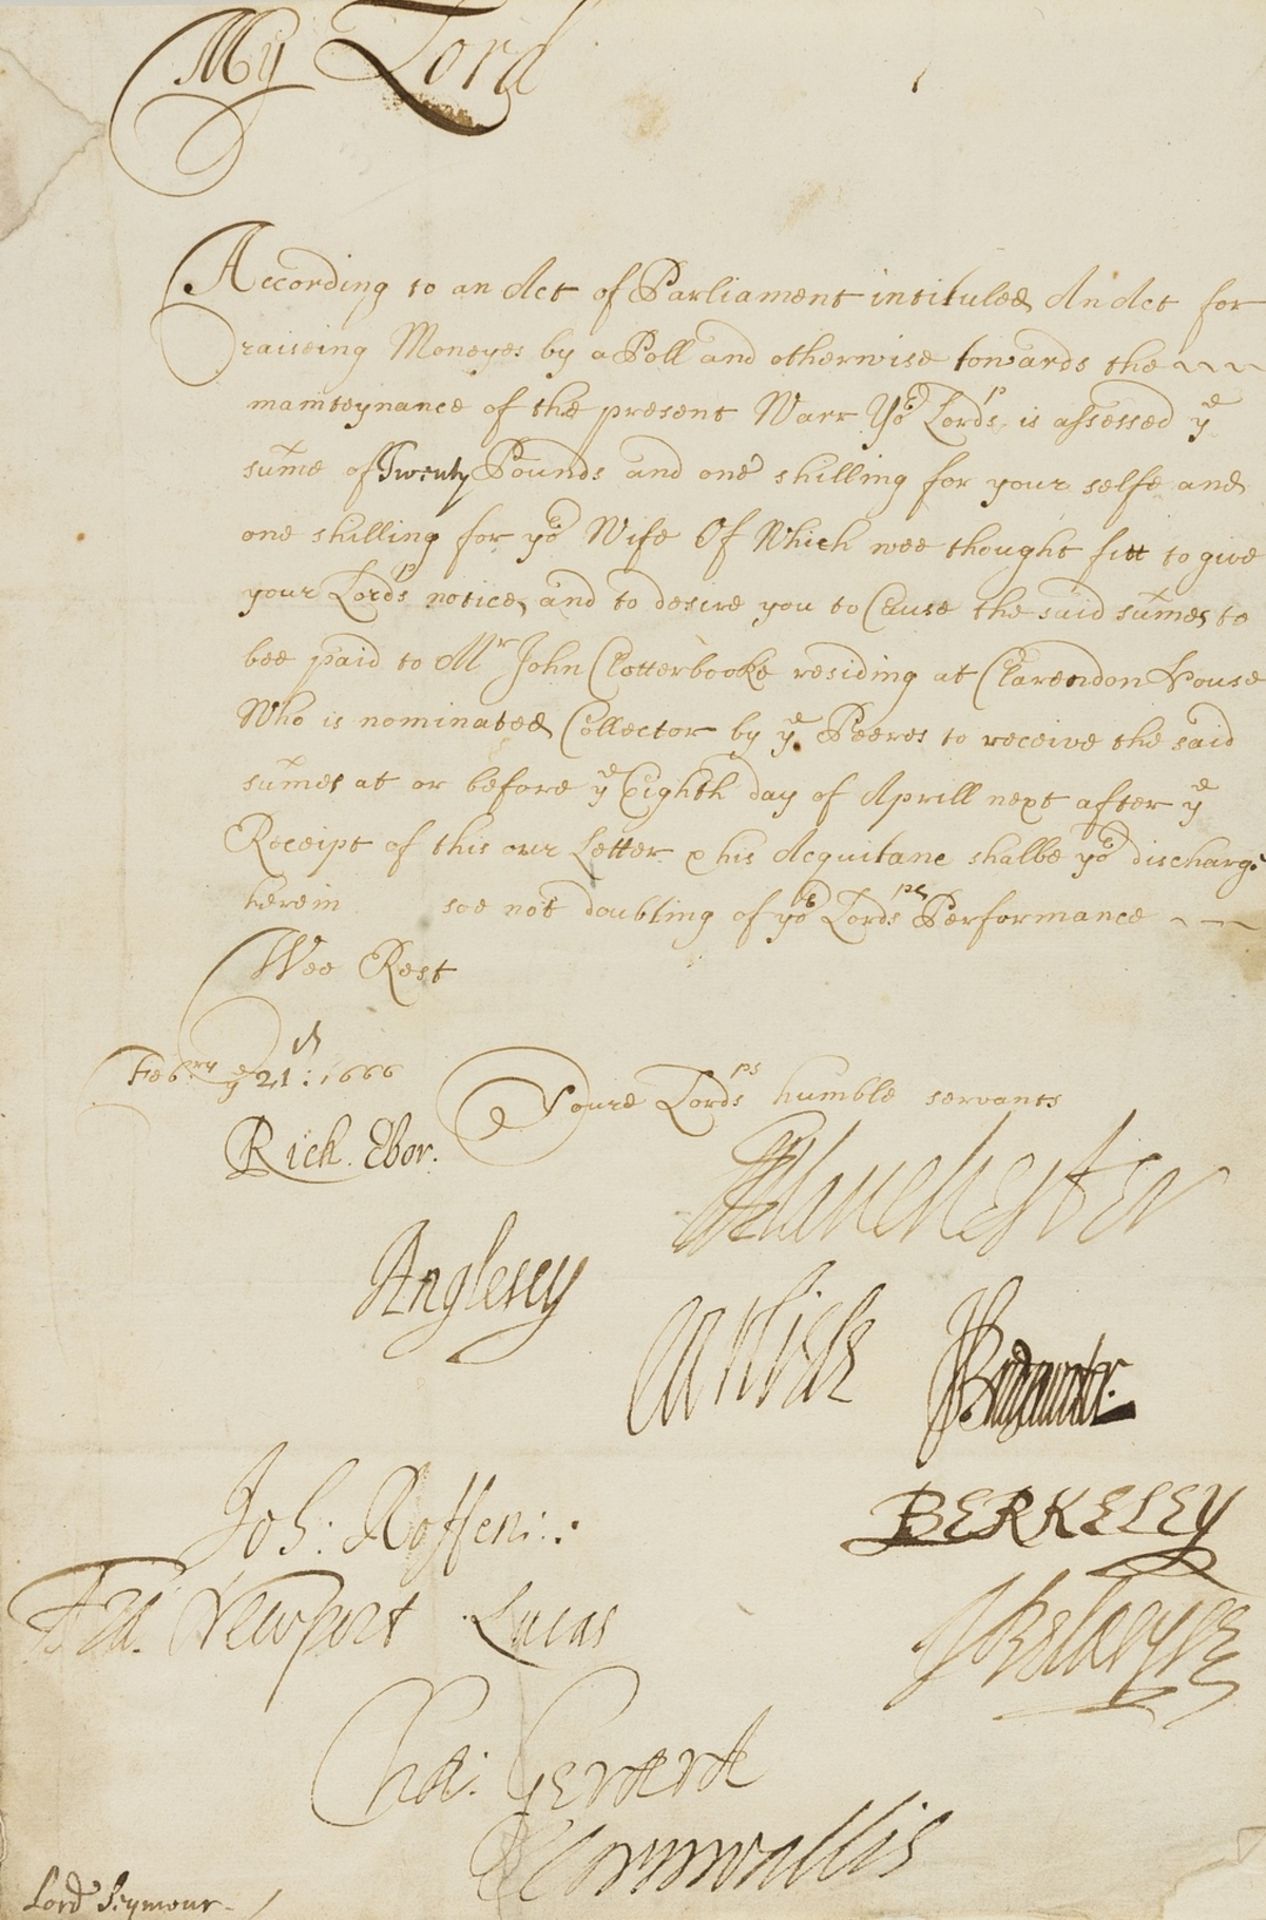 My Lord
According to an Act of Parliament intituled An Act for
raiseing Moneyes by a Poll and otherwise towards the
mainteynance of the present Warr Yoʳ Lordsᵖ is assessed yᵉ
sume of Twenty Pounds and one shilling for your selfe and
one shilling for yoʳ Wife Of Which wee thought fitt to give
your Lordsᵖ notice, and to desire you to Cause the said sumes to
bee paid to Mʳ John Clotterbooke residing at Clarendon House
Who is nominated Collector by yᵉ Peeres to receive the said
sumes at or before yᵉ Eighth day of Aprill next after yᵉ
Receipt of this our Letter & his Acquitane shalbe yoʳ discharge
herein soe not doubting of yoʳ Lordsᵖˢ Performance
Wee Rest
Febʳʸ yᵉ 21ᵗʰ: 1666
Youre Lordsᵖˢ humble servants
Rich. Ebor.
Manchester
Anglesey
Carlisle
JBridgewater.
Joh: Roffen:
BERKELEY
Fra. Newport
Lucas
JBelasyse
Cha: Gerard
Cornwallis
Lord Seymour